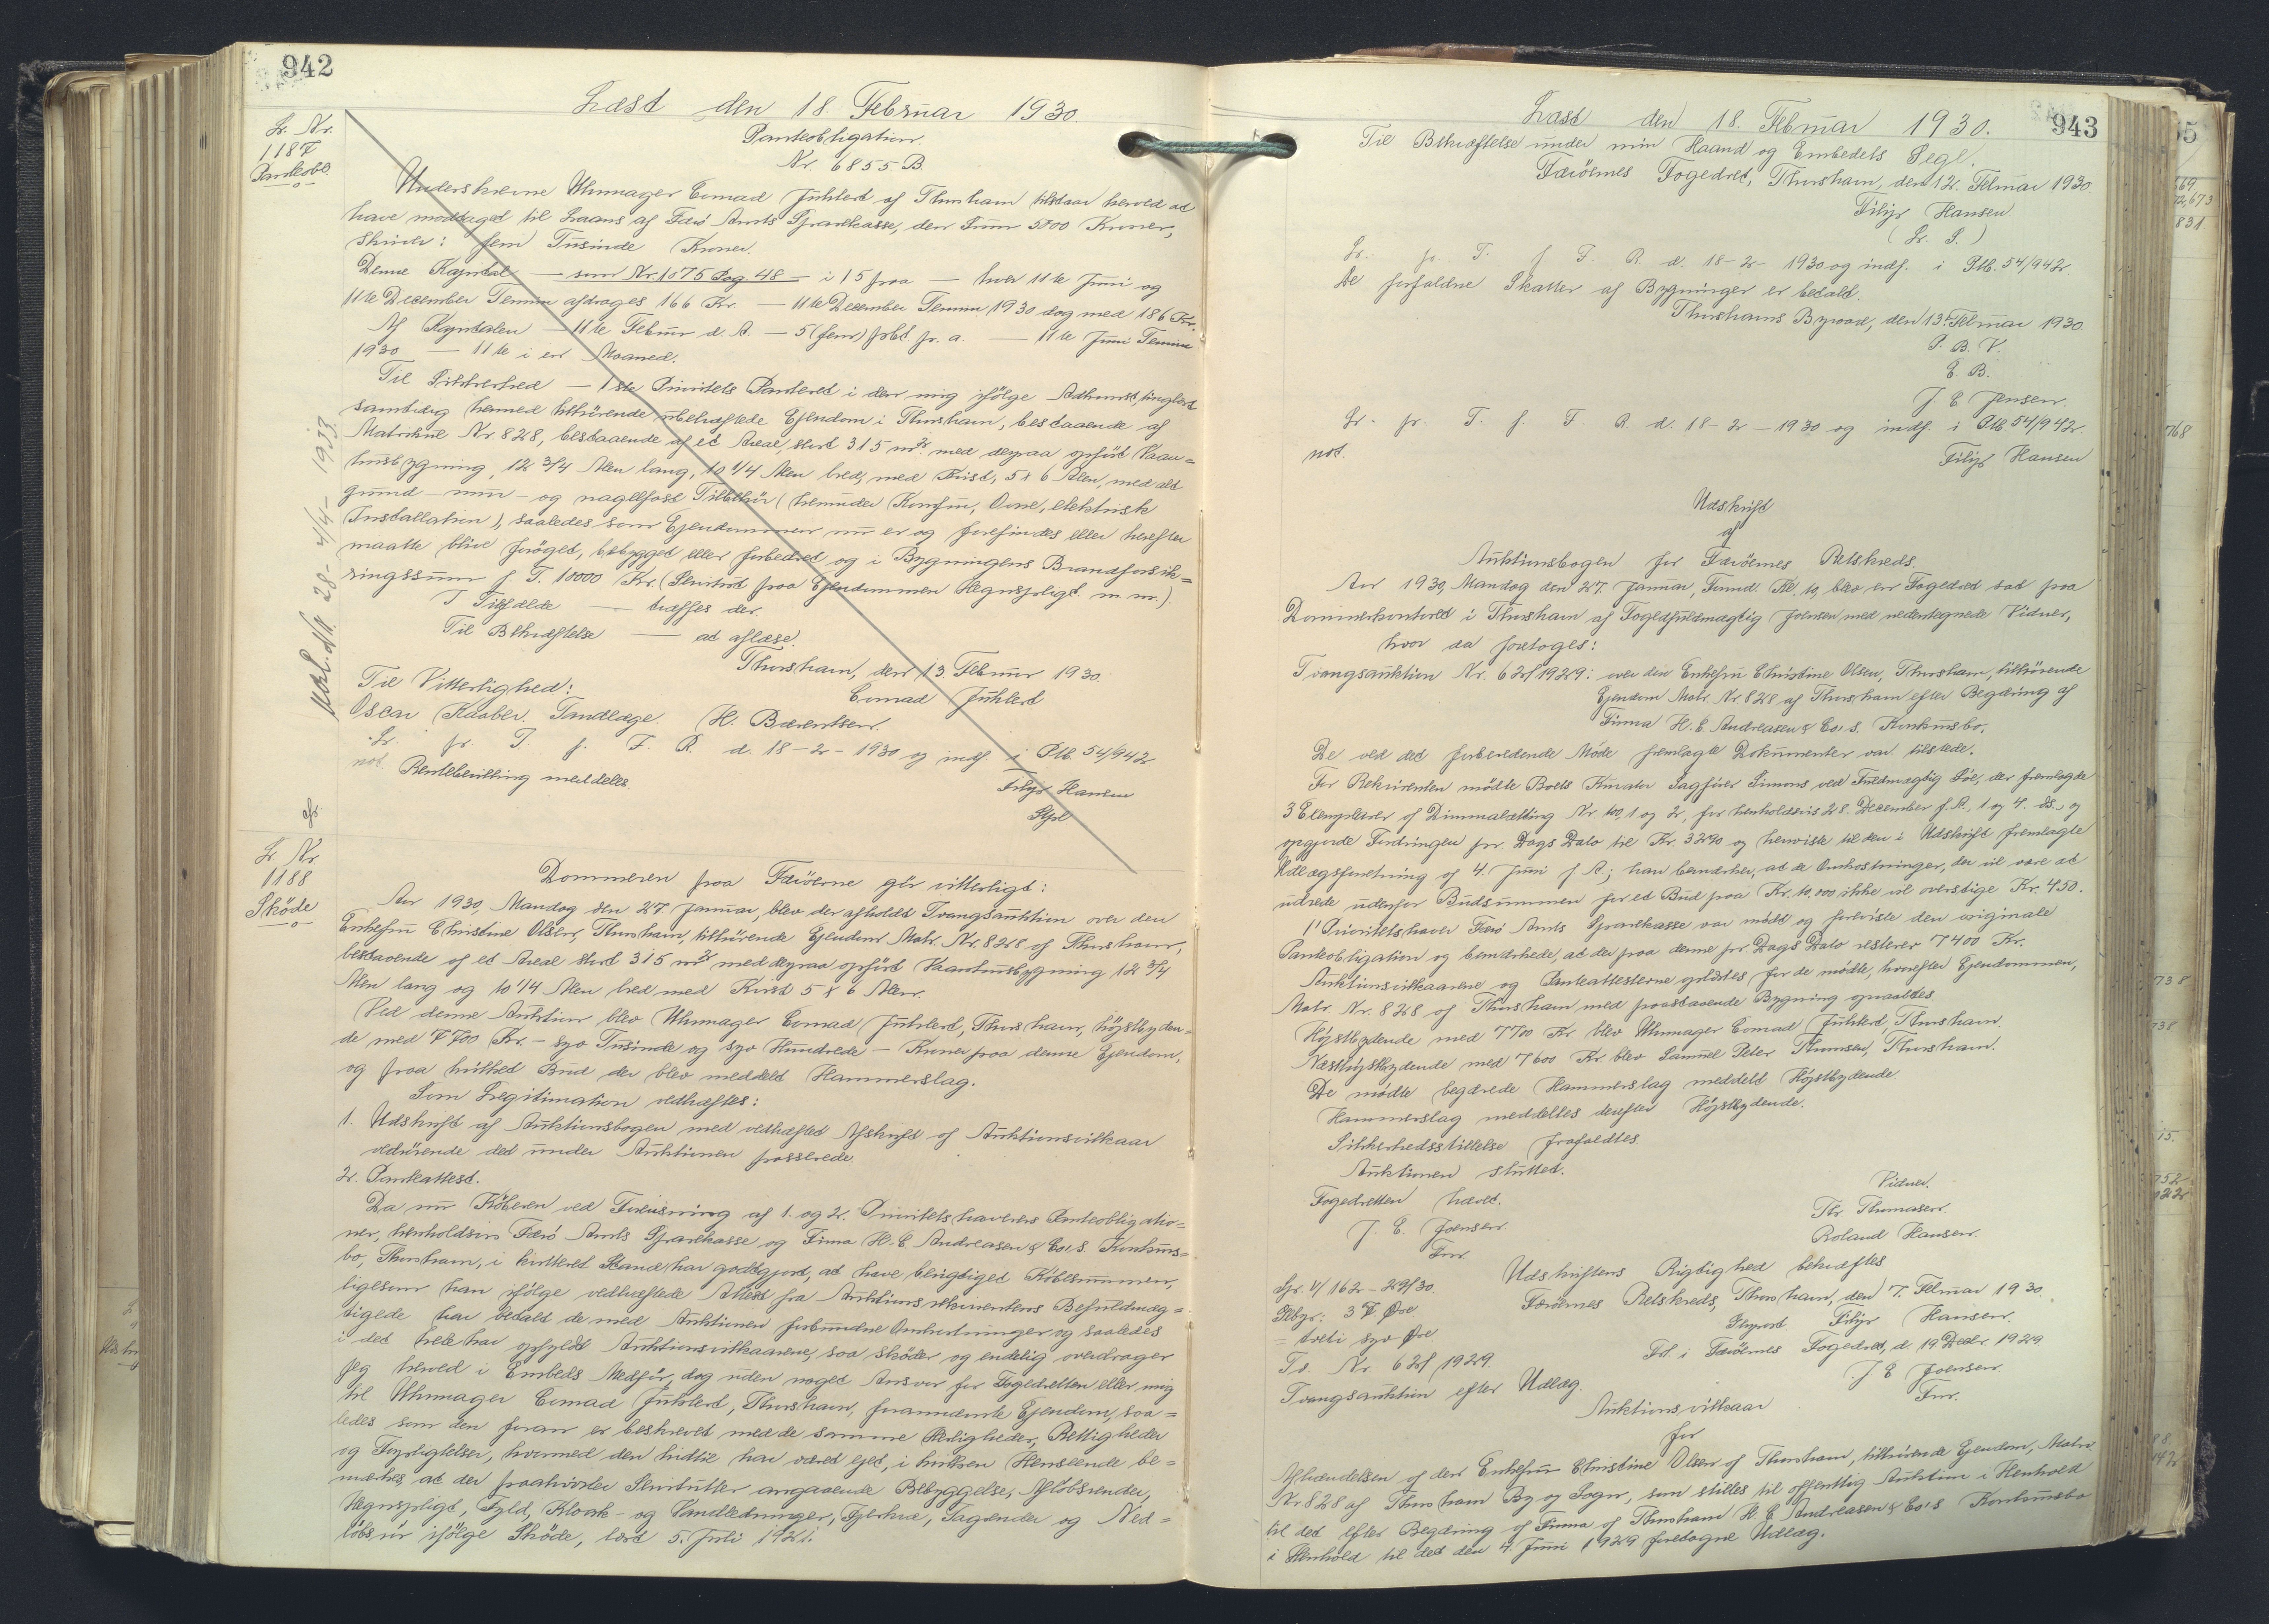 942
Læst den 18. Februar 1930
Lr. Nr.
1187
Panteobl.
Panteobligation.
Nr. 6855 B.
Underskrevne Uhrmager Conrad Juhlert af Thorshavn tilstaar herved at
have modtaget til Laans af Færø Amts Sparekasse, den Sum 5000 Kroner,
skriver: fem Tusinde Kroner.
Denne Kapital — som Nr. 1075 Pag. 48 — i 15 paa — hver 11te Juni og
11te December Termin afdrages 166 Kr. — 11te December Termin 1930 dog med 186 Kr.
Af Kapitalen — 11te Februar d. A. — 5 (fem) pCt. pr. a. — 11te Juni Termin
1930 — 11te i en Maaned.
Til Sikkerhed — 1ste Prioritets Panteret i den mig ifölge Adkomst, tinglæst
samtidig hermed tilhörende ubehæftede Ejendom i Thorshavn, bestaaende af
Matrikul Nr. 828, bestaaende af et Areal, stort 315 m² med derpaa opfört Vaan=
husbygning, 12 3/4 Alen lang, 10 1/4 Alen bred, med Kvist, 5 x 6 Alen, med alt
grund- mur- og nagelfast Tilbehör (herunder Komfur, Ovne, elektrisk
Installation), saaledes som Ejendommen nu er og forefindes eller herefter
maatte blive forøget, bebygget eller forbedret og i Bygningens Brandforsik=
ringssum f. T. 10000 Kr. (Servitut paa Ejendommen Hegnspligt m. m.).
I Tilfælde — træffes der.
Til Bekræftelse — at aflæse.
Thorshavn, den 13. Februar 1930.
Til Vitterlighed:
Conrad Juhlert
Oscar Kaaber. Tandlæge. H. Bærentsen.
Lr. fr. T. f. F. R. d. 18-2-1930 og indf. i Ptb. 54/942
not. Rentebevilling meddeles.
Filip Hansen
Stpl
28- 4/4- 1933
Lr. Nr.
1188
Sköde
Dommeren paa Færöerne gör vitterligt:
Aar 1930, Mandag den 27. Januar, blev der afholdt Tvangsauktion over den
Enkefru Christine Olsen, Thorshavn, tilhörende Ejendom Matr. Nr. 828 af Thorshavn,
bestaaende af et Areal stort 315 m² med derpaa opfört Vaanhusbygning 12 3/4
Alen lang og 10 1/4 Alen bred med Kvist 5 x 6 Alen.
Ved denne Auktion blev Uhrmager Conrad Juhlert, Thorshavn, höjstbyden=
de med 7700 Kr. - syv Tusinde og syv Hundrede - Kroner paa denne Ejendom,
og paa hvilket Bud der blev meddelt Hammerslag.
Som Legitimation vedhæftes:
1. Udskrift af Auktionsbogen med vedhæftet Afskrift af Auktionsvilkaar
vedrörende det under Auktionen passerede.
2. Panteattest.
Da nu Köberen ved Forevisning af 1. og 2. Prioritetshaverens Panteobligatio=
ner, henholdsvis Færö Amts Sparekasse og Firma H. C. Andreasen & Co's. Konkurs=
bo, Thorshavn, i kvitteret Stand, har godtgjort, at have berigtiget Köbesummen,
ligesom han ifölge vedhæftede Attest fra Auktionsrekvirentens Befuldmæg=
tigede har betalt de med Auktionen forbundne Omkostninger og saaledes
i det hele har opfyldt Auktionsvilkaarene, saa sköder og endelig overdrager
jeg herved i Embeds Medför, dog uden noget Ansvar for Fogedretten eller mig
til Uhrmager Conrad Juhlert, Thorshavn, forannævnte Ejendom, saa=
ledes som den foran er beskrevet med de samme Herligheder, Rettigheder
og Forpligtelser, hvormed den hidtil har været ejet, i hvilken Henseende be=
mærkes, at der paahviler Servitutter angaaende Bebyggelse, Aflöbsrender,
Hegnspligt, Fyld, Kloak- og Vandledninger, Tagrender og Ned=
löbsrör ifölge Sköde, læst 5. Juli 1921.
943
Læst den 18. Februar 1930.
Til Bekræftelse under min Haand og Embedets Segl.
Færöernes Fogedret, Thorshavn, den 12. Februar 1930.
Filip Hansen
(L. S.)
Lr. fr. T. f. F. R. d. 18-2-1930 og indf. i Ptb. 54/942.
De forfaldne Skatter af Bygninger er betalt.
Thorshavns Byraad, den 13. Februar 1930.
P. B. V.
E. B.
J. E. Jensen.
Lr. fr. T. f. F. R. d. 18-2-1930 og indf. i Ptb 54/942.
not.
Filip Hansen
Udskrift
af
Auktionsbogen for Færöernes Retskreds.
Aar 1930, Mandag den 27. Januar, Formd. Kl. 10, blev en Fogedret sat paa
Dommerkontoret i Thorshavn af Fogedfuldmægtig Joensen med nedentegnede Vidner,
hvor da foretoges:
Tvangsauktion Nr. 62/1929: over den Enkefru Christine Olsen, Thorshavn, tilhörende
Ejendom Matr. Nr 828 af Thorshavn efter Begæring af
Firma H. C. Andreasen & Co's. Konkursbo.
De ved det forberedende Möde fremlagte Dokumenter var tilstede.
For Rekvirenten mödte Boets Kurator Sagförer Simons ved Fuldmægtig Löe, der fremlagde
3 Exemplarer af Dimmalætting Nr. 100, 1 og 2, for henholdsvis 28. December f. A., 1. og 4. ds., og
opgjorde Fordringen pr. Dags Dato til Kr. 3290 og henviste til den i Udskrift fremlagte
Udlægsforretning af 4. Juni f. A.; han bemærker, at de Omkostninger, der vil være at
udrede udenfor Budsummen for et Bud paa Kr. 10.000 ikke vil overstige Kr. 450.
1' Prioritetshaver Færö Amts Sparekasse var mödt og foreviste den originale
Panteobligation og bemærkede, at der paa denne pr. Dags Dato resterer 7400 Kr.
Auktionsvilkaarene og Panteattesterne oplæstes for de mödte, hvorefter Ejendommen,
Matr. Nr. 828 af Thorshavn med paastaaende Bygning opraabtes
Höjstbydende med 7700 Kr blev Uhrmager Conrad Juhlert, Thorshavn.
Næsthöjstbydende med 7600 Kr. blev Samuel Peter Thomsen, Thorshavn.
De mödte begærede Hammerslag meddelt Höjstbydende
Hammerslag meddeltes derefter Höjstbydende.
Sikkerhedsstillelse frafaldtes
Auktionen sluttet.
Fogedretten hævet.
Vidner.
J. E. Joensen
Fm.
Th. Thomasen.
Roland Hansen.
Udskriftens Rigtighed bekræftes
Færöernes Retskreds, Thorshavn, den 7. Februar 1930.
Filip Hansen.
Gebyr: 37 Øre
= treti syv Øre.
Ta. Nr 62/1929.
Tvangsauktion efter Udlæg.
Frl. i Færöernes Fogedret, d. 19 Decbr. 1929.
J E Joensen
Fm.
Auktionsvilkaar
for
Afhændelsen af den Enkefru Christine Olsen af Thorshavn, tilhörende Ejendom, Matr.
Nr 828 af Thorshavn By og Sogn, som stilles til offentlig Auktion i Henhold
til det efter Begæring af Firma af Thorshavn H. C. Andreasen & Co's Konkursbo
i Henhold til det den 4. Juni 1929 foretagne Udlæg.